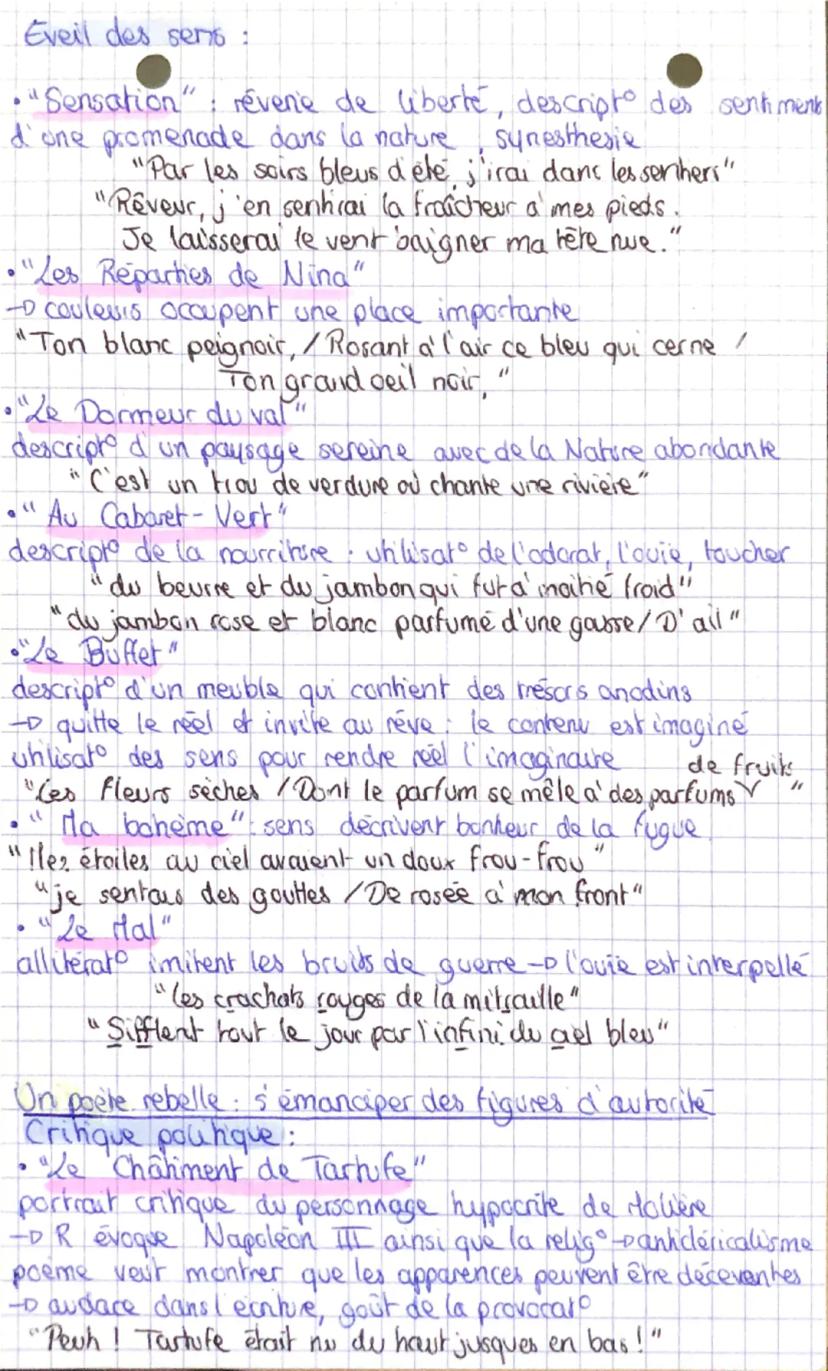 Éveil des sens :
• "Sensation" : rêverie de liberté, descript° des sentiments
d'une promenade dans la nature, synesthésie
"Par les soirs bleus d'été, j'irai dans les sentiers"
"Rêveur, j'en sentirai la fraîcheur à mes pieds.
Je laisserai le vent baigner ma tête nue."
• "Les Réparties de Nina"
→ couleurs occupent une place importante
"Ton blanc peignoir, / Rosant à l'air ce bleu qui cerne /
Ton grand oeil noir, "
• "Le Dormeur du val"
descript° d'un paysage sereine avec de la Nature abondante
"C'est un trou de verdure où chante une rivière"
• "Au Cabaret-Vert"
descript° de la nourriture : utilisat° de l'odorat, l'ouïe, toucher
"du beurre et du jambon qui fut à moitié froid"
"du jambon rose et blanc parfumé d'une gousse / D'ail"
• "Le Buffet"
descript° d'un meuble qui contient des trésors anodins
→ quitte le réel et invite au rêve : le contenu est imaginé
utilisat° des sens pour rendre réel l'imaginaire
"Les fleurs sèches / Dont le parfum se mêle à des parfums de fruits"
• "Ma bohème" : sens décrivent bonheur de la fugue
"Mes étoiles au ciel avaient un doux frou-frou"
"je sentais des gouttes / De rosée à mon front"
• "Le Mal"
allitérat° imitent les bruits de guerre → l'ouïe est interpellé
"les crachats rouges de la mitraille"
"Sifflent tout le jour par l'infini du ciel bleu"
Un poète rebelle : s'émanciper des figures d'autorité
Critique politique :
• "Le Châtiment de Tartufe"
portrait critique du personnage hypocrite de Molière
→ R évoque Napoléon III ainsi que la relig° → anticléricalisme
poème veut montrer que les apparences peuvent être décevantes
→ audace dans l'écriture, goût de la provocat°
"Peuh ! Tartufe était nu du haut jusques en bas !"